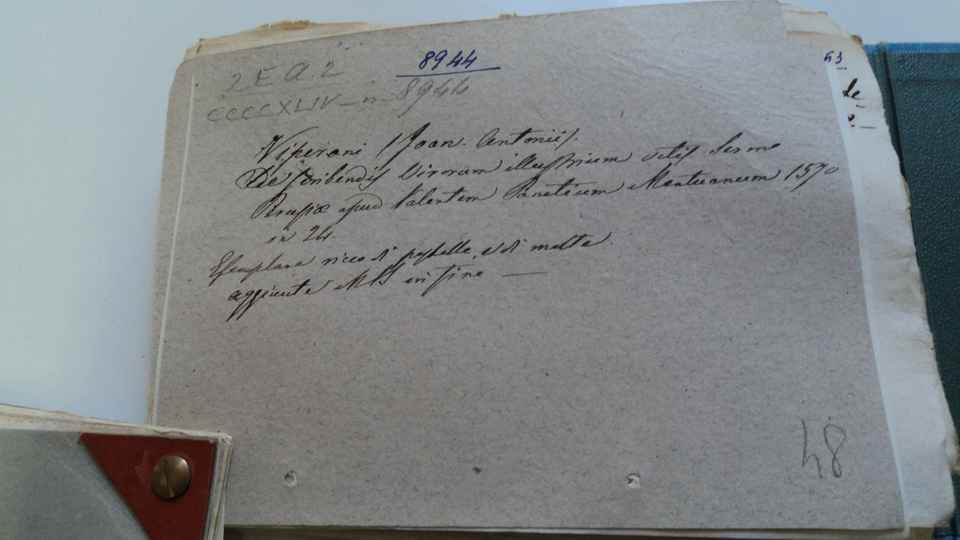 8944
63
2 E A 2
CCCCXLIV_n_8944
de
Viperani (Joan. Antonii).
De scribendis Virorum illustrium vitis Sermo
Perusiæ apud Valentem Paneticum Mantuanum 1570
in 24.
Esemplare ricco di postille, e di molte
aggiunte MS in fine —
48